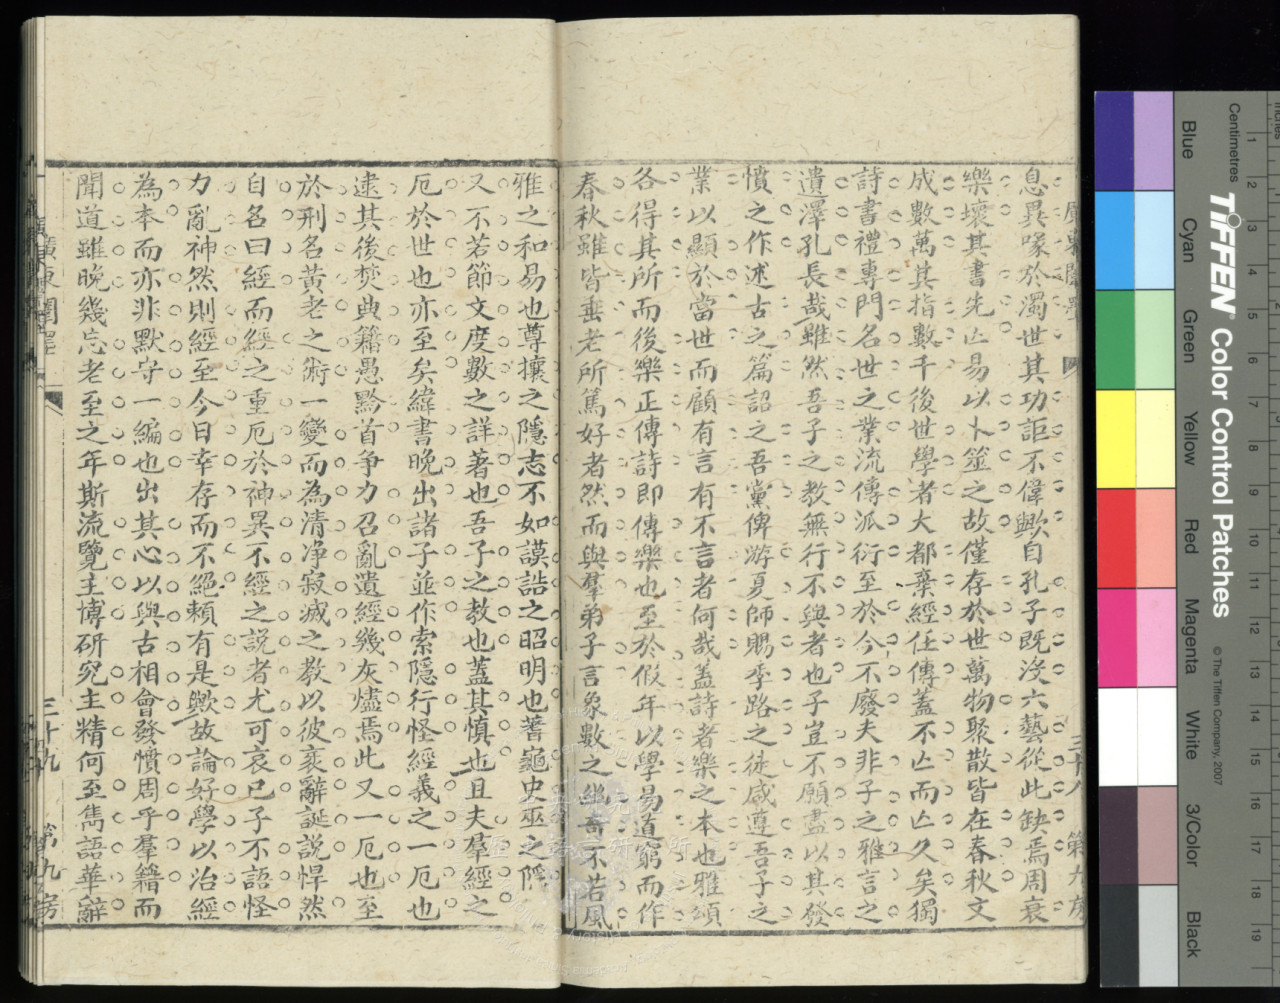 息異喙於濁世其功詎不偉歟自孔子既沒六藝從此缺焉周衰
樂壞其書先亡易以卜筮之故僅存於世萬物聚散皆在春秋文
成數萬其指數千後世學者大都棄經任傳蓋不亡而亡久矣獨
詩書禮專門名世之業流傳派衍至於今不廢夫非子之雅言之
遺澤孔長哉雖然吾子之教無行不與者也子豈不願盡以其發
憤之作述古之篇詔之吾黨俾游夏師賜季路之徒咸遵吾子之
業以顯於當世而顧有言有不言者何哉蓋詩者樂之本也雅頌
各得其所而後樂正傳詩即傳樂也至於假年以學易道窮而作
春秋雖皆垂老所篤好者然而與羣弟子言象數之幽奇不若風
雅之和易也尊攘之隱志不如謨誥之昭明也蓍龜史巫之隱
又不若節文度數之詳著也吾子之教也蓋其慎也且夫羣經之
厄於世也亦至矣緯書晚出諸子並作索隱行怪經義之一厄也
逮其後焚典籍愚黔首争力召亂遺經幾灰燼焉此又一厄也至
於刑名黃老之術一變而為清净寂滅之教以彼衺辭誕說悍然
自名曰經而經之重厄於神異不經之説者尤可哀已子不語怪
力亂神然則經至今日幸存而不絕賴有是歟故論好學以治經
為本而亦非默守一編也出其心以與古相會發憤周乎羣籍而
聞道雖晚幾忘老至之年斯流覽主博研究主精何至雋語華辭
廣東闈墨
三十九
第九房
三十八
第九房
Centimetres
TIFFEN Color Control Patches
© The Tiffen Company, 2007
Blue
Cyan
Green
Yellow
Red
Magenta
White
3/Color
Black
1
2
3
4
5
6
7
8
9
10
11
12
13
14
15
16
17
18
19